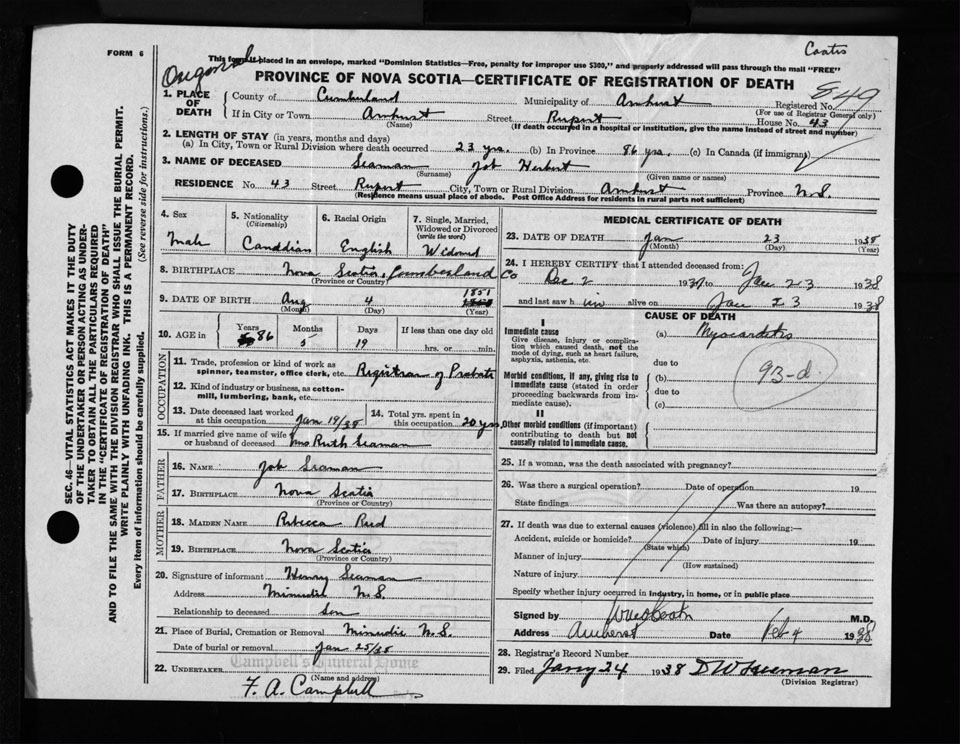 FORM 6
Coates
This form if placed in an envelope, marked "Dominion Statistics—Free, penalty for improper use $300," and properly addressed will pass through the mail "FREE"
PROVINCE OF NOVA SCOTIA—CERTIFICATE OF REGISTRATION OF DEATH
1. PLACE OF DEATH
County of Cumberland Municipality of Amherst Registered No. 849
(For use of Registrar General only)
If in City or Town Amherst Street Rupert House No. 43
(Name) (If death occurred in a hospital or institution, give the name instead of street and number)
2. LENGTH OF STAY (in years, months and days)
(a) In City, Town or Rural Division where death occurred 23 yrs. (b) In Province 86 yrs. (c) In Canada (if immigrant)
3. NAME OF DECEASED Seaman Job Herbert
(Surname) (Given name or names)
RESIDENCE No. 43 Street Rupert City, Town or Rural Division Amherst Province N.S.
(Residence means usual place of abode. Post Office Address for residents in rural parts not sufficient)
4. Sex
Male
5. Nationality
(Citizenship)
Canadian
6. Racial Origin
English
7. Single, Married, Widowed or Divorced
(write the word)
Widowed
8. BIRTHPLACE Nova Scotia, Cumberland Co
(Province or Country)
9. DATE OF BIRTH Aug 4 1851
(Month) (Day) (Year)
10. AGE in Years Months Days If less than one day old
86 5 19 hrs. or min.
OCCUPATION
11. Trade, profession or kind of work as spinner, teamster, office clerk, etc. Registrar of Probate
12. Kind of industry or business, as cotton-mill, lumbering, bank, etc.
13. Date deceased last worked at this occupation Jan 19/38
14. Total yrs. spent in this occupation 20 yrs.
15. If married give name of wife or husband of deceased Mrs Ruth Seaman
FATHER
16. NAME Job Seaman
17. BIRTHPLACE Nova Scotia
(Province or Country)
MOTHER
18. MAIDEN NAME Rebecca Reid
19. BIRTHPLACE Nova Scotia
(Province or Country)
20. Signature of informant Henry Seaman
Address Minudie N.S.
Relationship to deceased Son
21. Place of Burial, Cremation or Removal Minudie N.S.
Date of burial or removal Jan 25/38
Campbell's Funeral Home
22. UNDERTAKER
(Name and address)
F. A. Campbell
MEDICAL CERTIFICATE OF DEATH
23. DATE OF DEATH Jan 23 1938
(Month) (Day)
24. I HEREBY CERTIFY that I attended deceased from:
Dec 2 1937 to Jan 23 1938
and last saw him alive on Jan 23 1938
CAUSE OF DEATH
I
Immediate cause
Give disease, injury or complication which caused death, not the mode of dying, such as heart failure, asphyxia, asthenia, etc.
(a) Myocarditis
due to
Morbid conditions, if any, giving rise to immediate cause (stated in order proceeding backwards from immediate cause).
(b)
due to
(c)
93-d
II
Other morbid conditions (if important) contributing to death but not causally related to immediate cause.
25. If a woman, was the death associated with pregnancy?
26. Was there a surgical operation? Date of operation 19
State findings Was there an autopsy?
27. If death was due to external causes (violence) fill in also the following:—
Accident, suicide or homicide? Date of injury 19
(State which)
Manner of injury
(How sustained)
Nature of injury
Specify whether injury occurred in industry, in home, or in public place
Signed by M.D.
Address Amherst Date Feb 4 1938
28. Registrar's Record Number
29. Filed Jany 24 1938
(Division Registrar)
SEC. 46—VITAL STATISTICS ACT MAKES IT THE DUTY
OF THE UNDERTAKER OR PERSON ACTING AS UNDER-
TAKER TO OBTAIN ALL THE PARTICULARS REQUIRED
IN THE "CERTIFICATE OF REGISTRATION OF DEATH"
AND TO FILE THE SAME WITH THE DIVISION REGISTRAR WHO SHALL ISSUE THE BURIAL PERMIT.
WRITE PLAINLY WITH UNFADING INK. THIS IS A PERMANENT RECORD.
Every item of information should be carefully supplied. (See reverse side for instructions.)